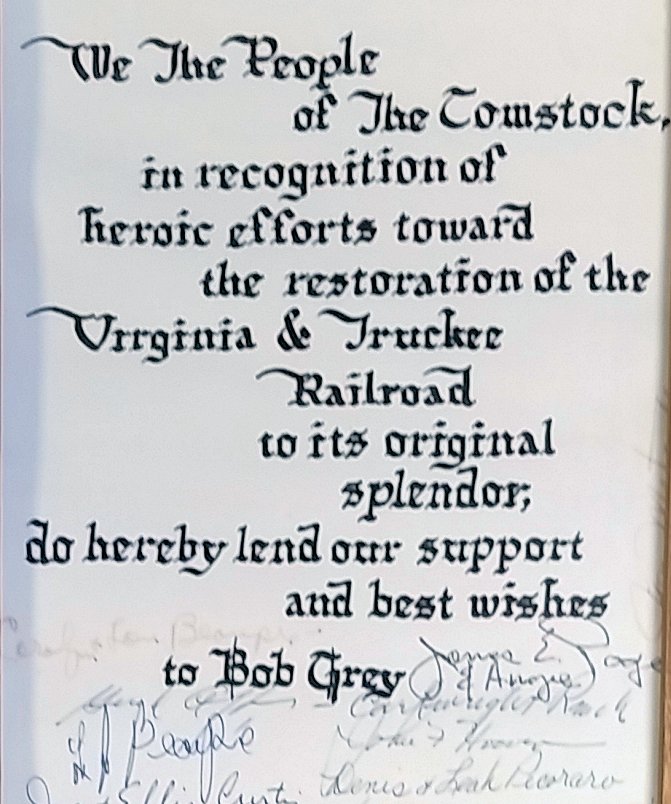 We The People
of The Comstock,
in recognition of
heroic efforts toward
the restoration of the
Virginia & Truckee
Railroad
to its original
splendor,
do hereby lend our support
and best wishes
to Bob Grey
James E.
& Angie
Cartwright Ranch
John F Hoover
Denis & Leah Pecoraro